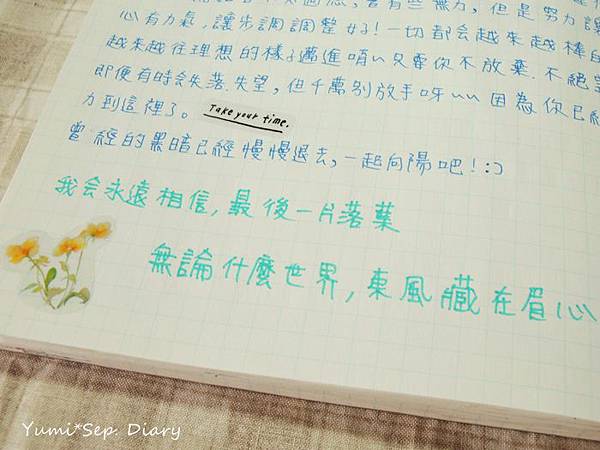 有些無力，但是努力讓
心有力氣，讓步調調整好！一切都会越來越棒的
越來越往理想的樣子邁進唷～只要你不放棄.不絕望
即便有時会失落.失望，但千萬別放手呀～～因為你已經
力到這裡了。 Take your time.
曾經的黑暗已經慢慢退去，一起向陽吧！:)
我会永遠相信，最後一片落葉
無論什麼世界，東風藏在眉心
Yumi*Sep. Diary